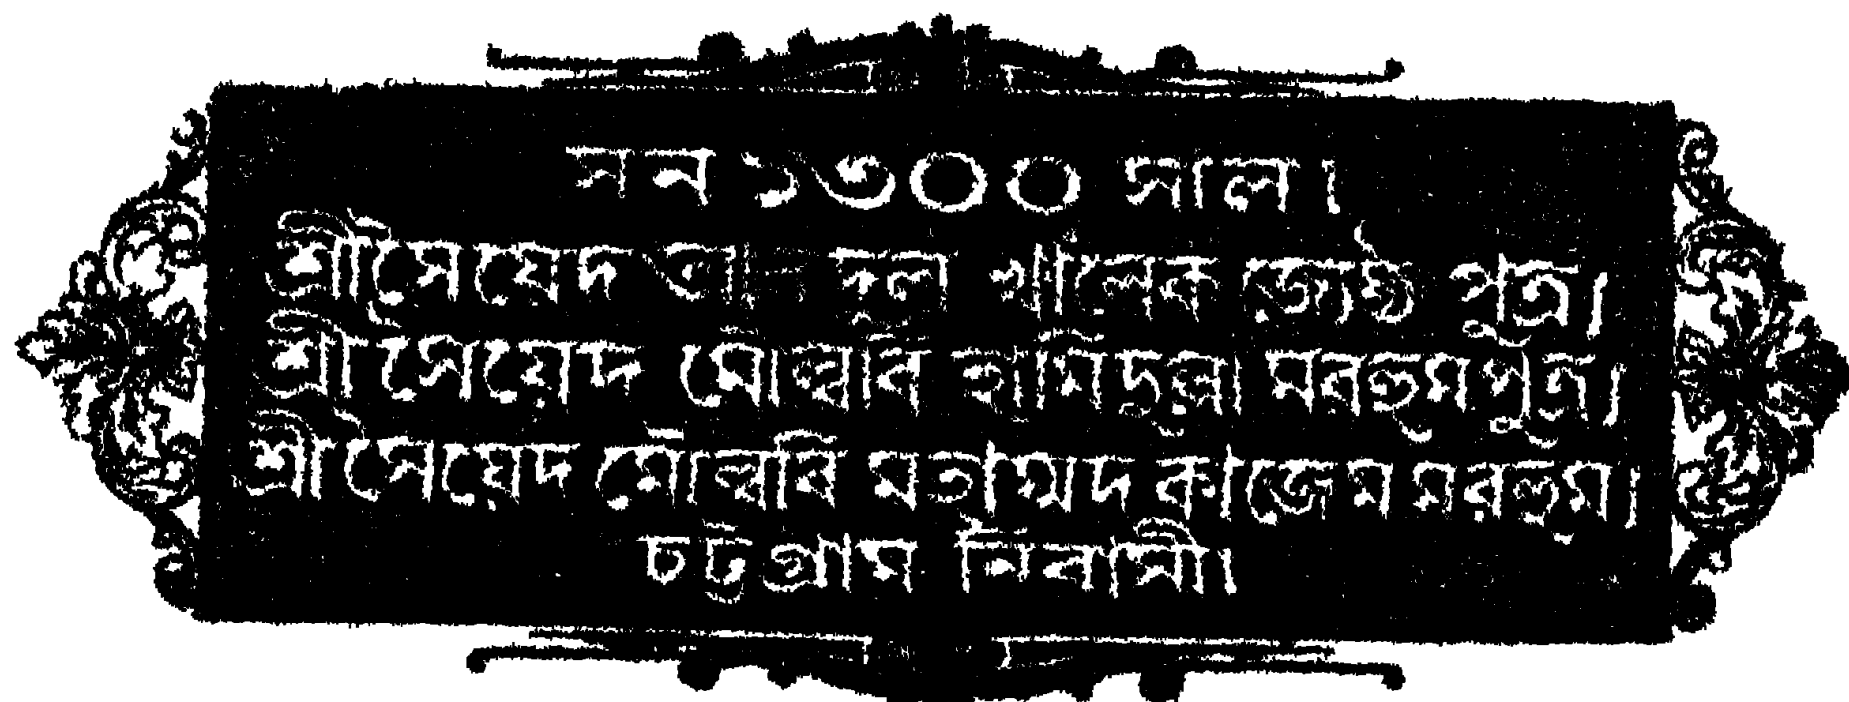 সন ১৩০০ সাল।
শ্রীসৈয়েদ দুল খালেক জ্যেষ্ঠ পুত্র।
শ্রীসৈয়েদ মৌল্ববি হামিদুল্লা মরহুম পুত্র।
শ্রীসৈয়েদ মৌল্ববি মহাম্মদ কাজেম মরহুম।
চট্টগ্রাম নিবাসী।